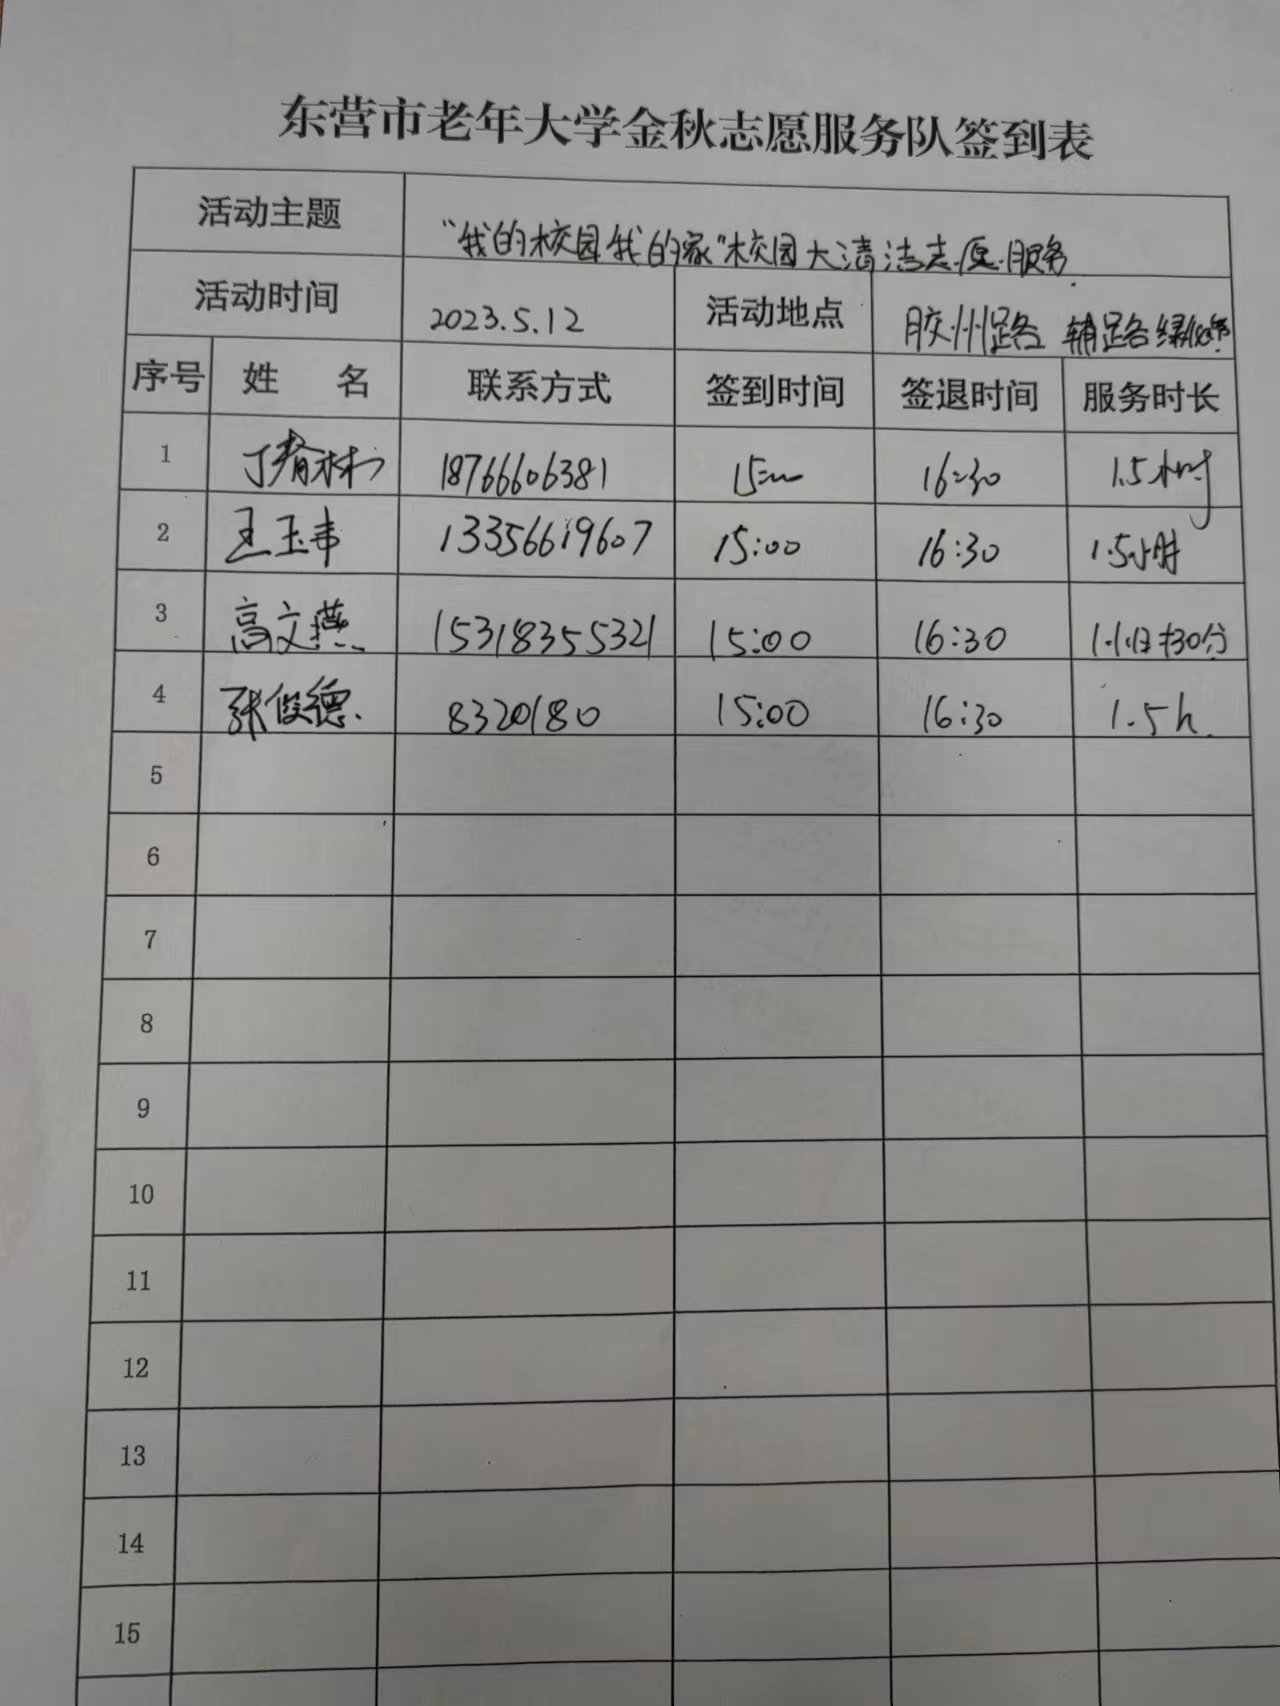 东营市老年大学金秋志愿服务队签到表
活动主题 “我的校园我的家”校园大清洁志愿服务.
活动时间 2023.5.12 活动地点 胶州路 辅路绿化带
序号 姓 名 联系方式 签到时间 签退时间 服务时长
1 丁春林 18766606381 15:00 16:30 1.5小时
2 王玉韦 13356619607 15:00 16:30 1.5小时
3 高文燕 15318355321 15:00 16:30 1小时30分
4 张俊德. 8320180 15:00 16:30 1.5h.
5
6
7
8
9
10
11
12
13
14
15